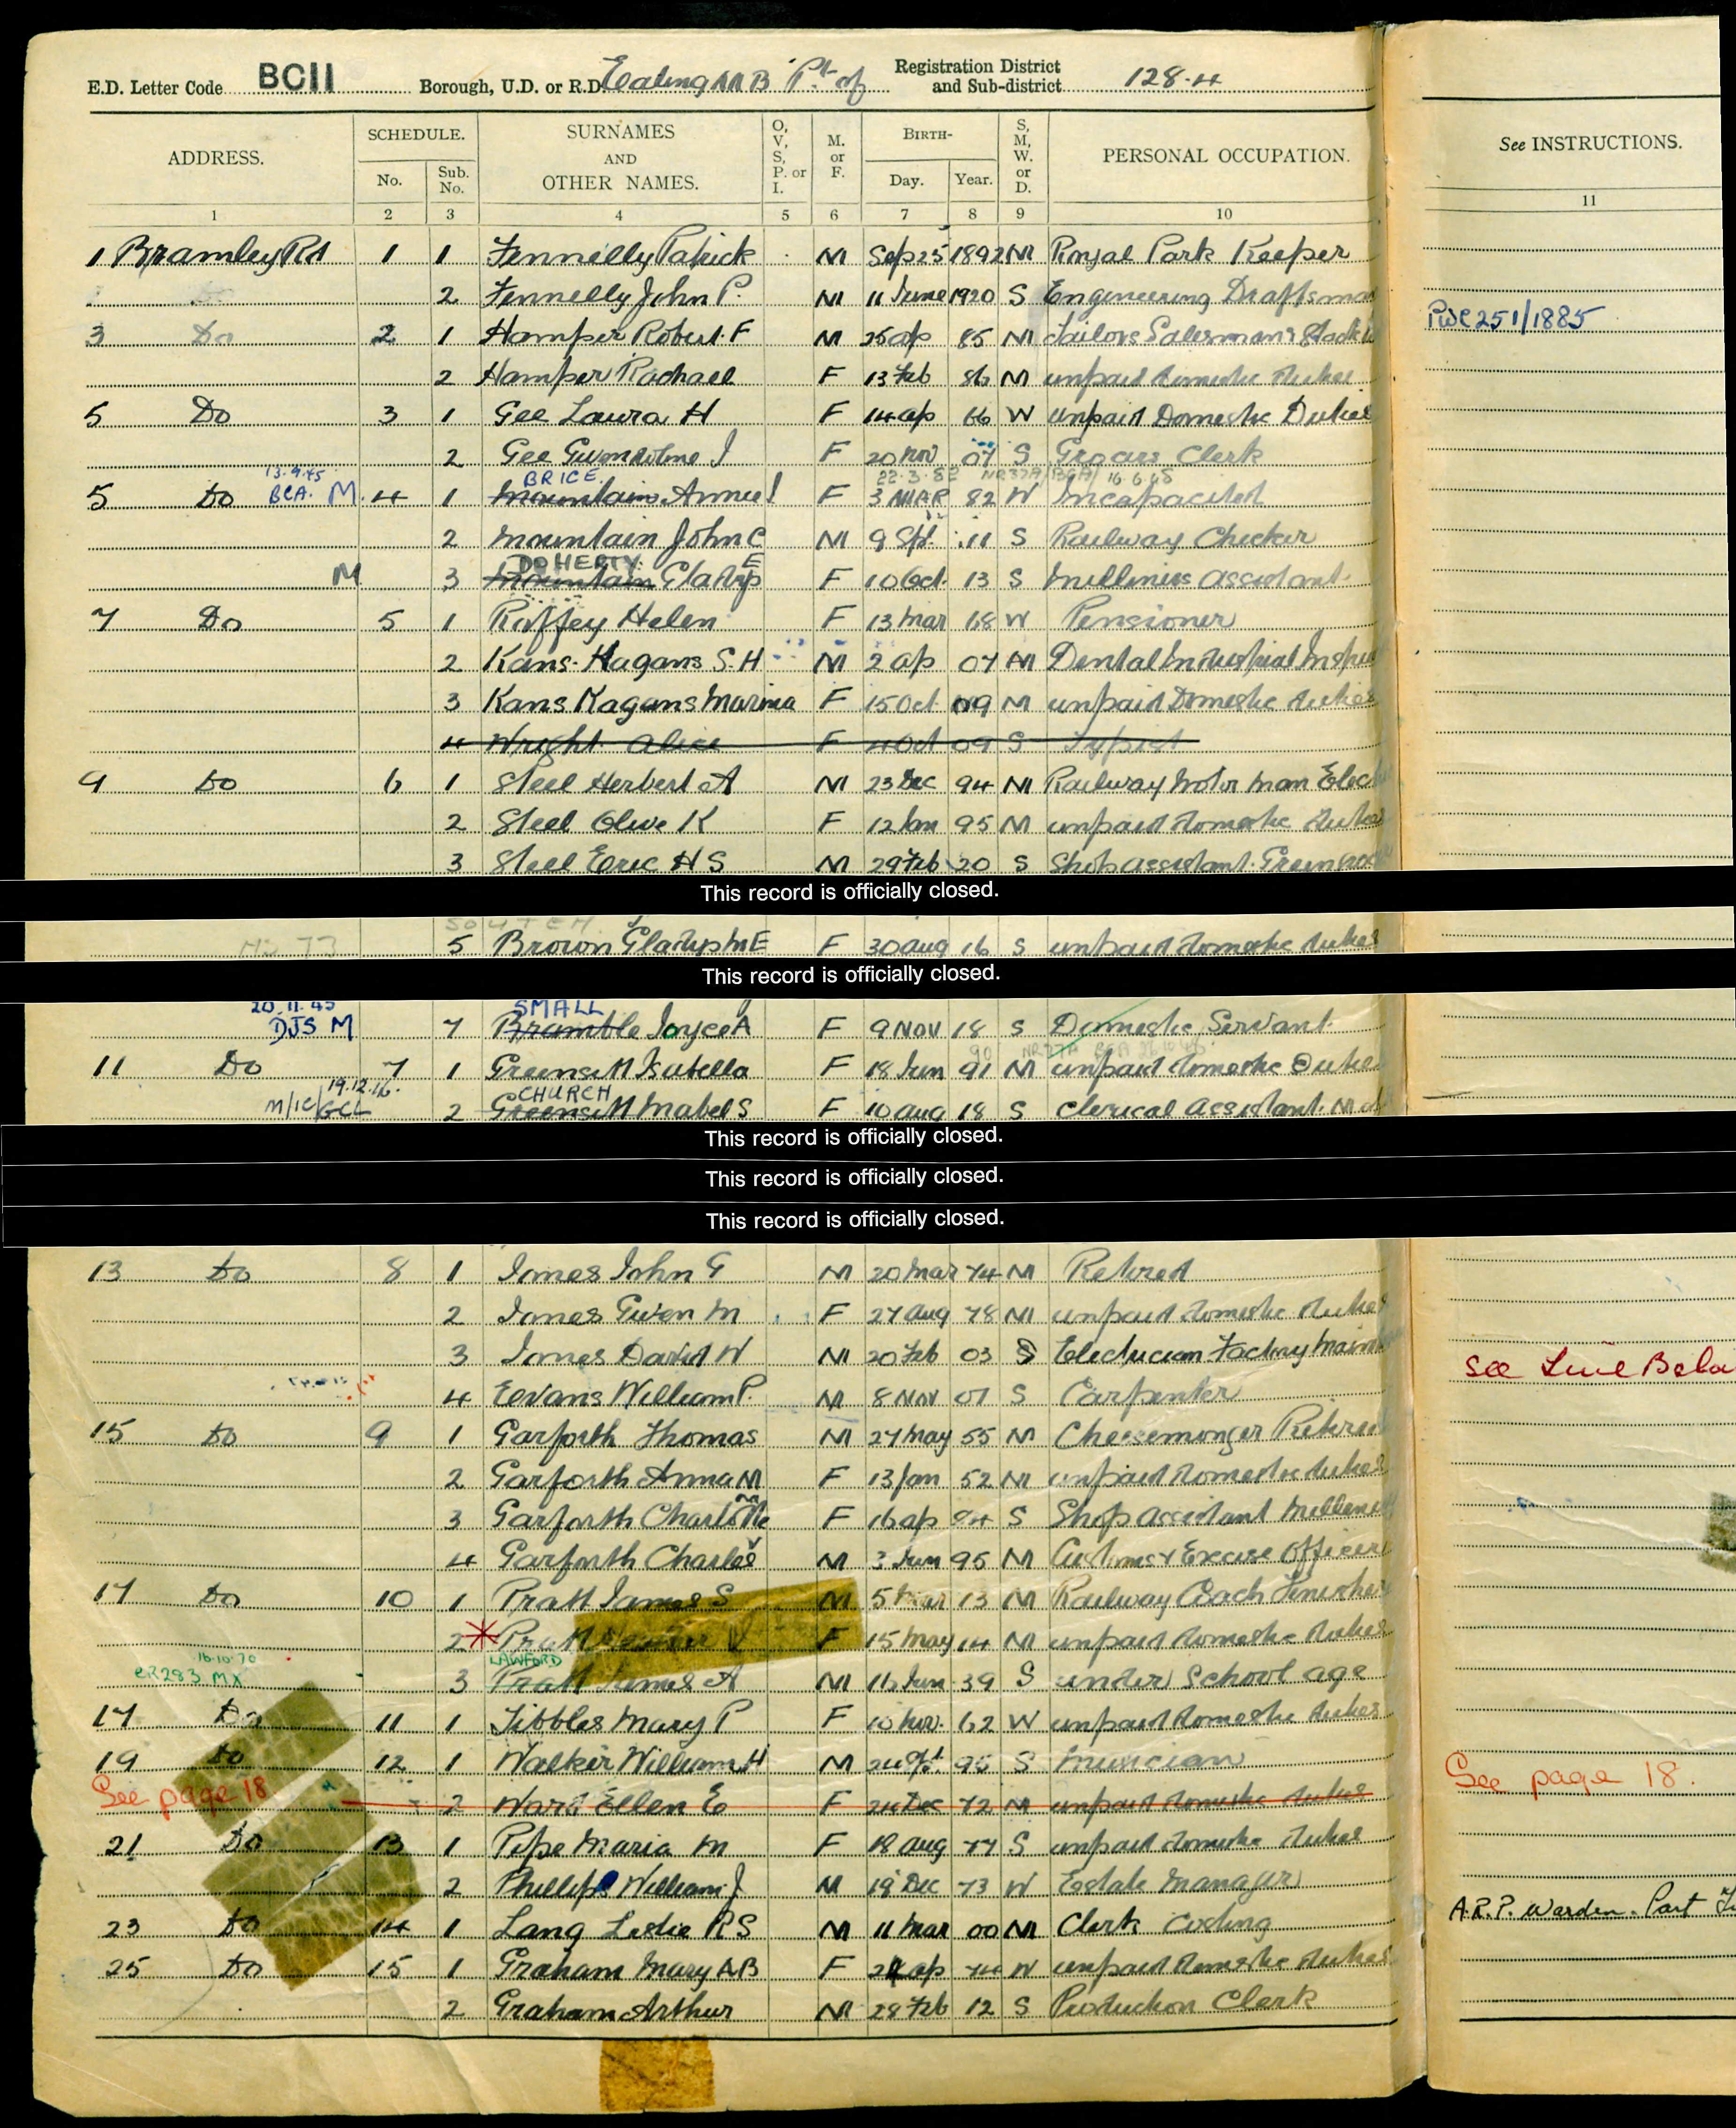 E.D. Letter Code BCII Borough, U.D. or R.D. Ealing M B Pt. of Registration District and Sub-district 128.4
ADDRESS. SCHEDULE. SURNAMES AND OTHER NAMES. O, V, S, P. or I. M. or F. BIRTH- S, M, W. or D. PERSONAL OCCUPATION. See INSTRUCTIONS.
No. Sub. No. Day. Year.
1 2 3 4 5 6 7 8 9 10 11
1 Bramley Rd 1 1 Fennelly Patrick M Sep 25 1892 M Royal Park Keeper
2 Fennelly John P. M 11 June 1920 S Engineering Draftsman
3 Do 2 1 Hamper Robert F M 25 ap 85 M Tailors Salesman PWC 251/1885
2 Hamper Rachael F 13 Feb 86 M unpaid domestic duties
5 Do 3 1 Gee Laura H F 14 ap 66 W unpaid Domestic Duties
2 Gee Gwendoline I F 20 Nov 07 S Grocers Clerk
13.9.45 BRICE 22.3.82 NR27A/BGA/ 16.6.65
5 Do BCA. M. 4 1 Mountain Annie F 3 MAR 82 W Incapacited
2 Mountain John C M 9 Spt. 11 S Railway Checker
DOHERTY E
M 3 Mountain Gladys F 10 Oct. 13 S Milliners assistant.
7 Do 5 1 Roffey Helen F 13 Mar 68 W Pensioner
2 Kans-Kagans S. H M 2 ap 07 M Dental Industrial
3 Kans Kagans Marina F 15 Oct 09 M unpaid Domestic duties
4 Wright Alice F 4 Oct 09 S Typist
9 Do 6 1 Steel Herbert A M 23 Dec 94 M Railway Motor man Elec
2 Steel Olive K F 12 Jan 95 M unpaid domestic duties
3 Steel Eric H S M 29 Feb 20 S Shop assistant. Greengroc
This record is officially closed.
5 Brown Gladys M E F 30 aug 16 S unpaid domestic duties
This record is officially closed.
20.11.45 SMALL
DJS M 7 Bramble Joyce A F 9 NOV 18 S Domestic Servant.
11 Do 7 1 Greensill Isabella F 18 Jun 91 M unpaid domestic Duties
19.12.46. CHURCH
M/IC/GCL 2 Greensill Mabel S F 10 aug 18 S clerical assistant.
This record is officially closed.
This record is officially closed.
This record is officially closed.
13 Do 8 1 Jones John G M 20 Mar 74 M Retired
2 Jones Gwen M F 27 aug 78 M unpaid domestic duties
3 Jones David W M 20 Feb 03 S Electrician Factory See Line Belo
4 Evans William P. M 8 NOV 07 S Carpenter
15 Do 9 1 Garforth Thomas M 27 May 55 M Cheesemonger Retired
2 Garforth Anna M F 13 Jan 52 M unpaid domestic duties
3 Garforth Charlotte F 16 ap 84 S Shop assistant
4 Garforth Charles M 3 Jun 95 M Customs & Excise Officer
17 Do 10 1 Pratt James S M 5 Mar 13 M Railway Coach Finisher
2 Pratt F 15 May 14 M unpaid domestic duties
16.10.70 LAWFORD
CR283 MX 3 Pratt James A M 16 Jun 39 S under School age
17 Do 11 1 Tibbles Mary P F 10 Nov. 62 W unpaid domestic duties
19 Do 12 1 Walker William H M 24 Spt. 95 S Musician
See page 18 2 Ward Ellen E F 24 Dec 72 M unpaid domestic duties See page 18.
21 Do 13 1 Pipe Maria M F 18 aug 77 S unpaid domestic duties
2 Phillips William J M 19 Dec 73 W Estate Manager
23 Do 14 1 Lang Leslie R S M 11 Mar 00 M Clerk Costing A.R.P. Warden. Part
25 Do 15 1 Graham Mary A B F 24 ap 74 W unpaid domestic duties
2 Graham Arthur M 28 Feb 12 S Production Clerk